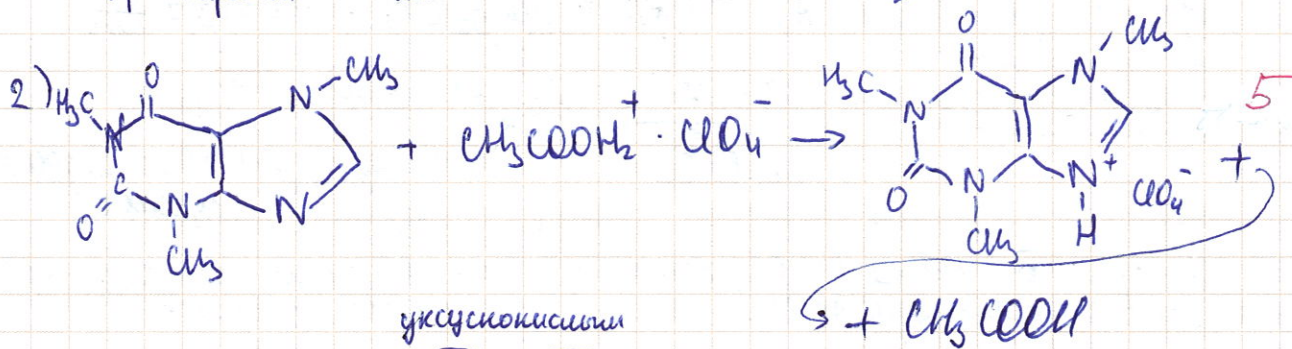 2) H₃C N O C O N CH₃ N CH₃ N + CH₃COOH₂⁺ · ClO₄⁻ → H₃C N O O N CH₃ N CH₃ N⁺ H ClO₄⁻ + 5
уксуснокислым
+ CH₃COOH